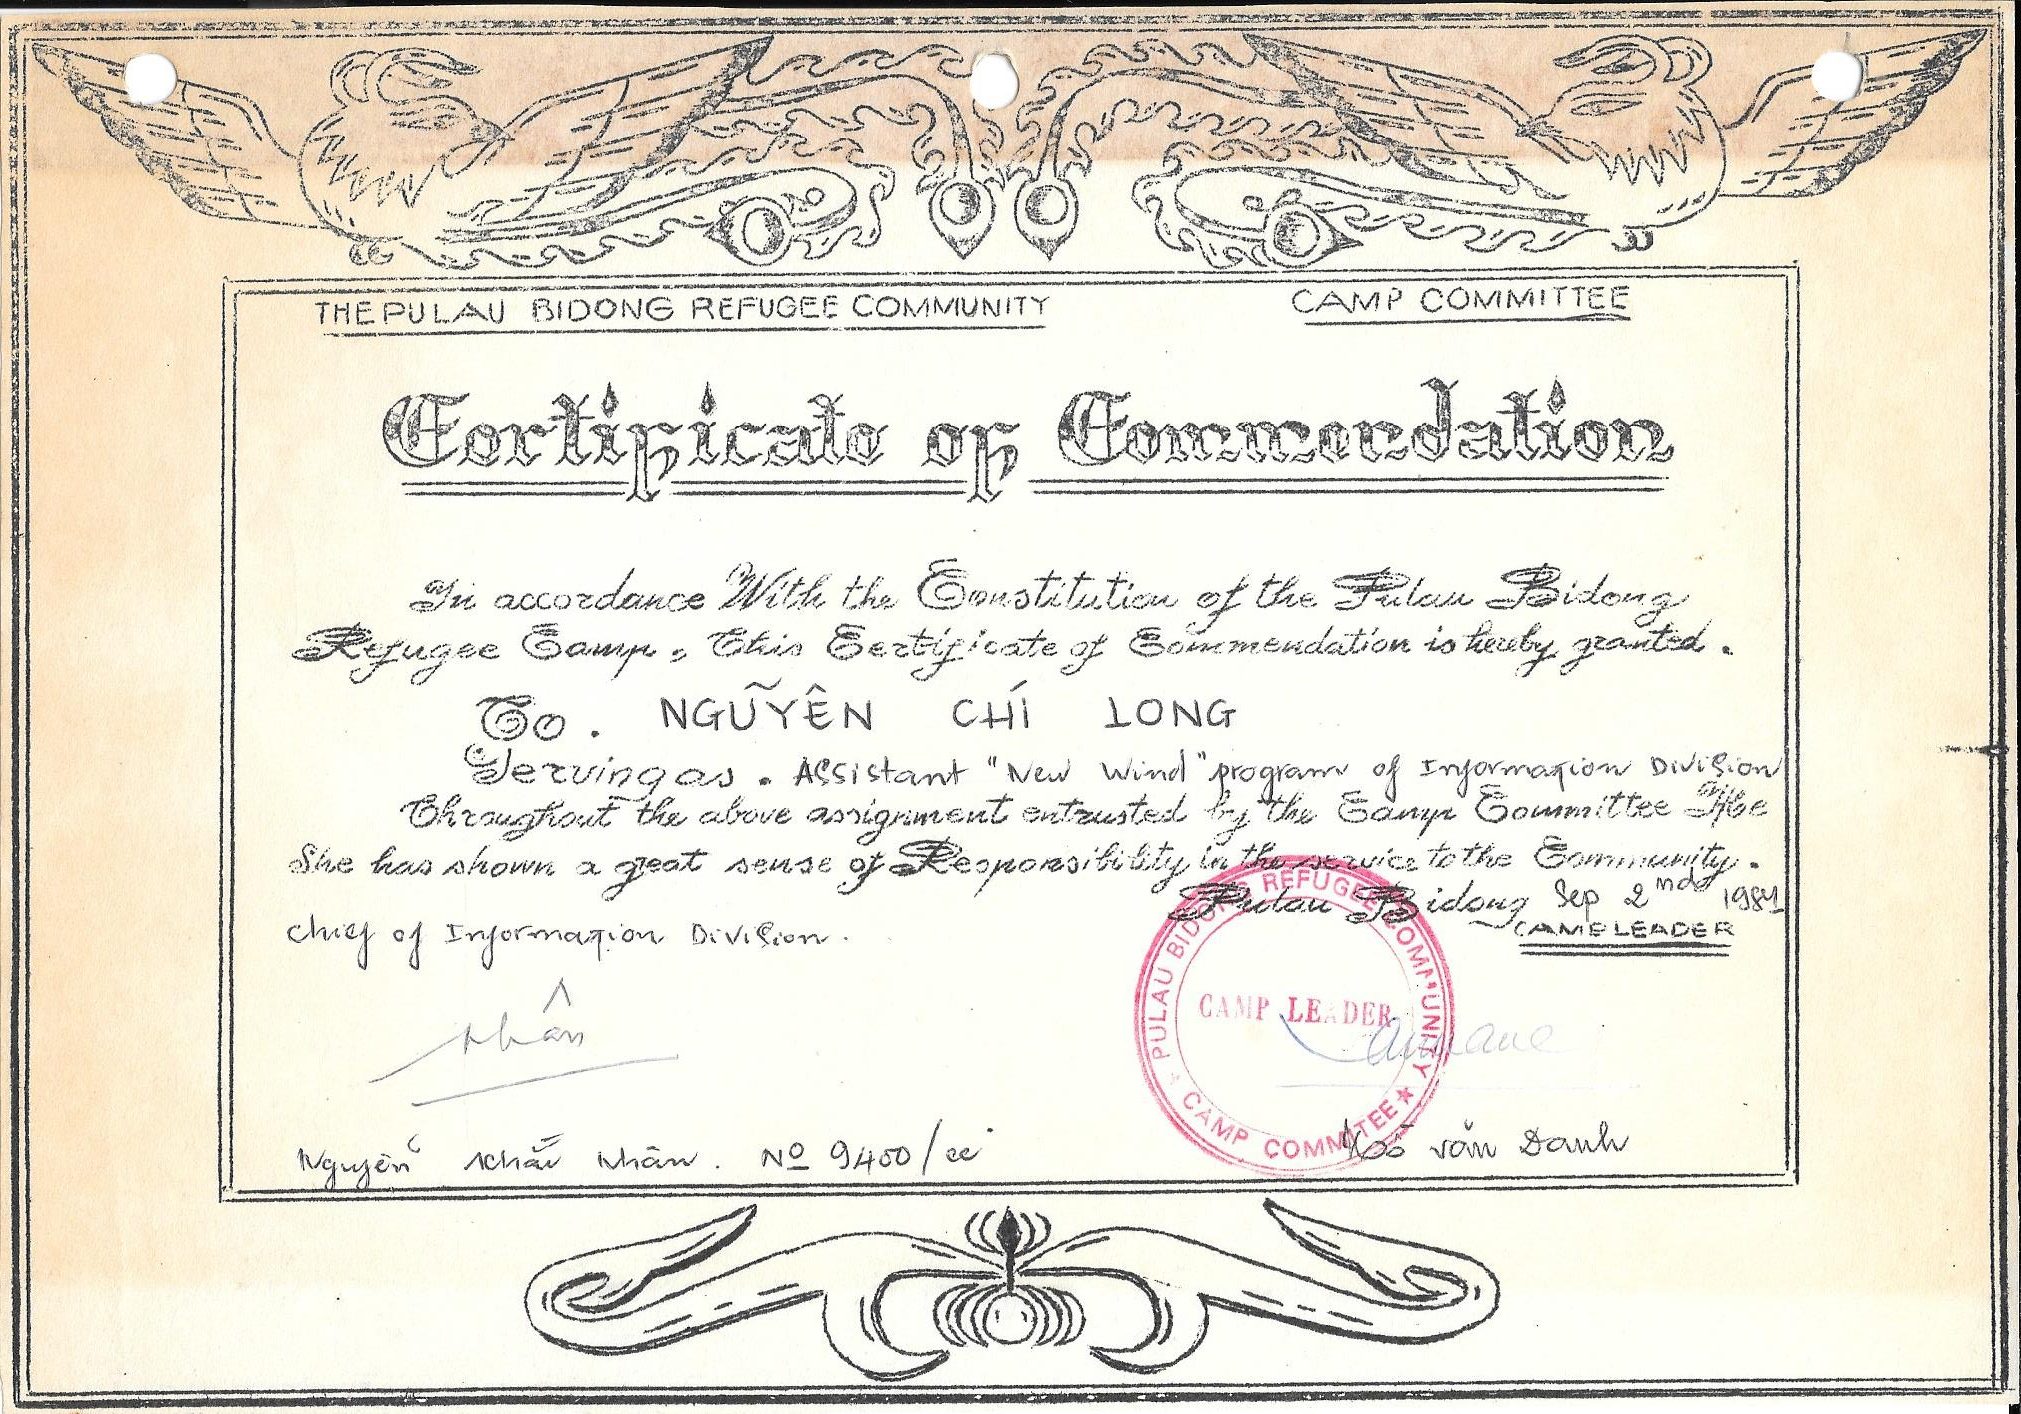 THE PULAU BIDONG REFUGEE COMMUNITY
CAMP COMMITTEE
Certificate of Commendation
In accordance With the Constitution of the Pulau Bidong
Refugee Camp, This Certificate of Commendation is hereby granted.
To. NGUỸÊN CHÍ LONG
Serving as. Assistant "New Wind" program of Information Division
Throughout the above assignment entrusted by the Camp Committee He
She has shown a great sense of Responsibility in the service to the Community.
Pulau Bidong Sep 2nd 1981
Chief of Information Division.
CAMP LEADER
PULAU BIDONG REFUGEE COMMUNITY
CAMP LEADER
CAMP COMMITTEE
Nhân
Nguyễn Nhân. No 9400/cc
văn Danh